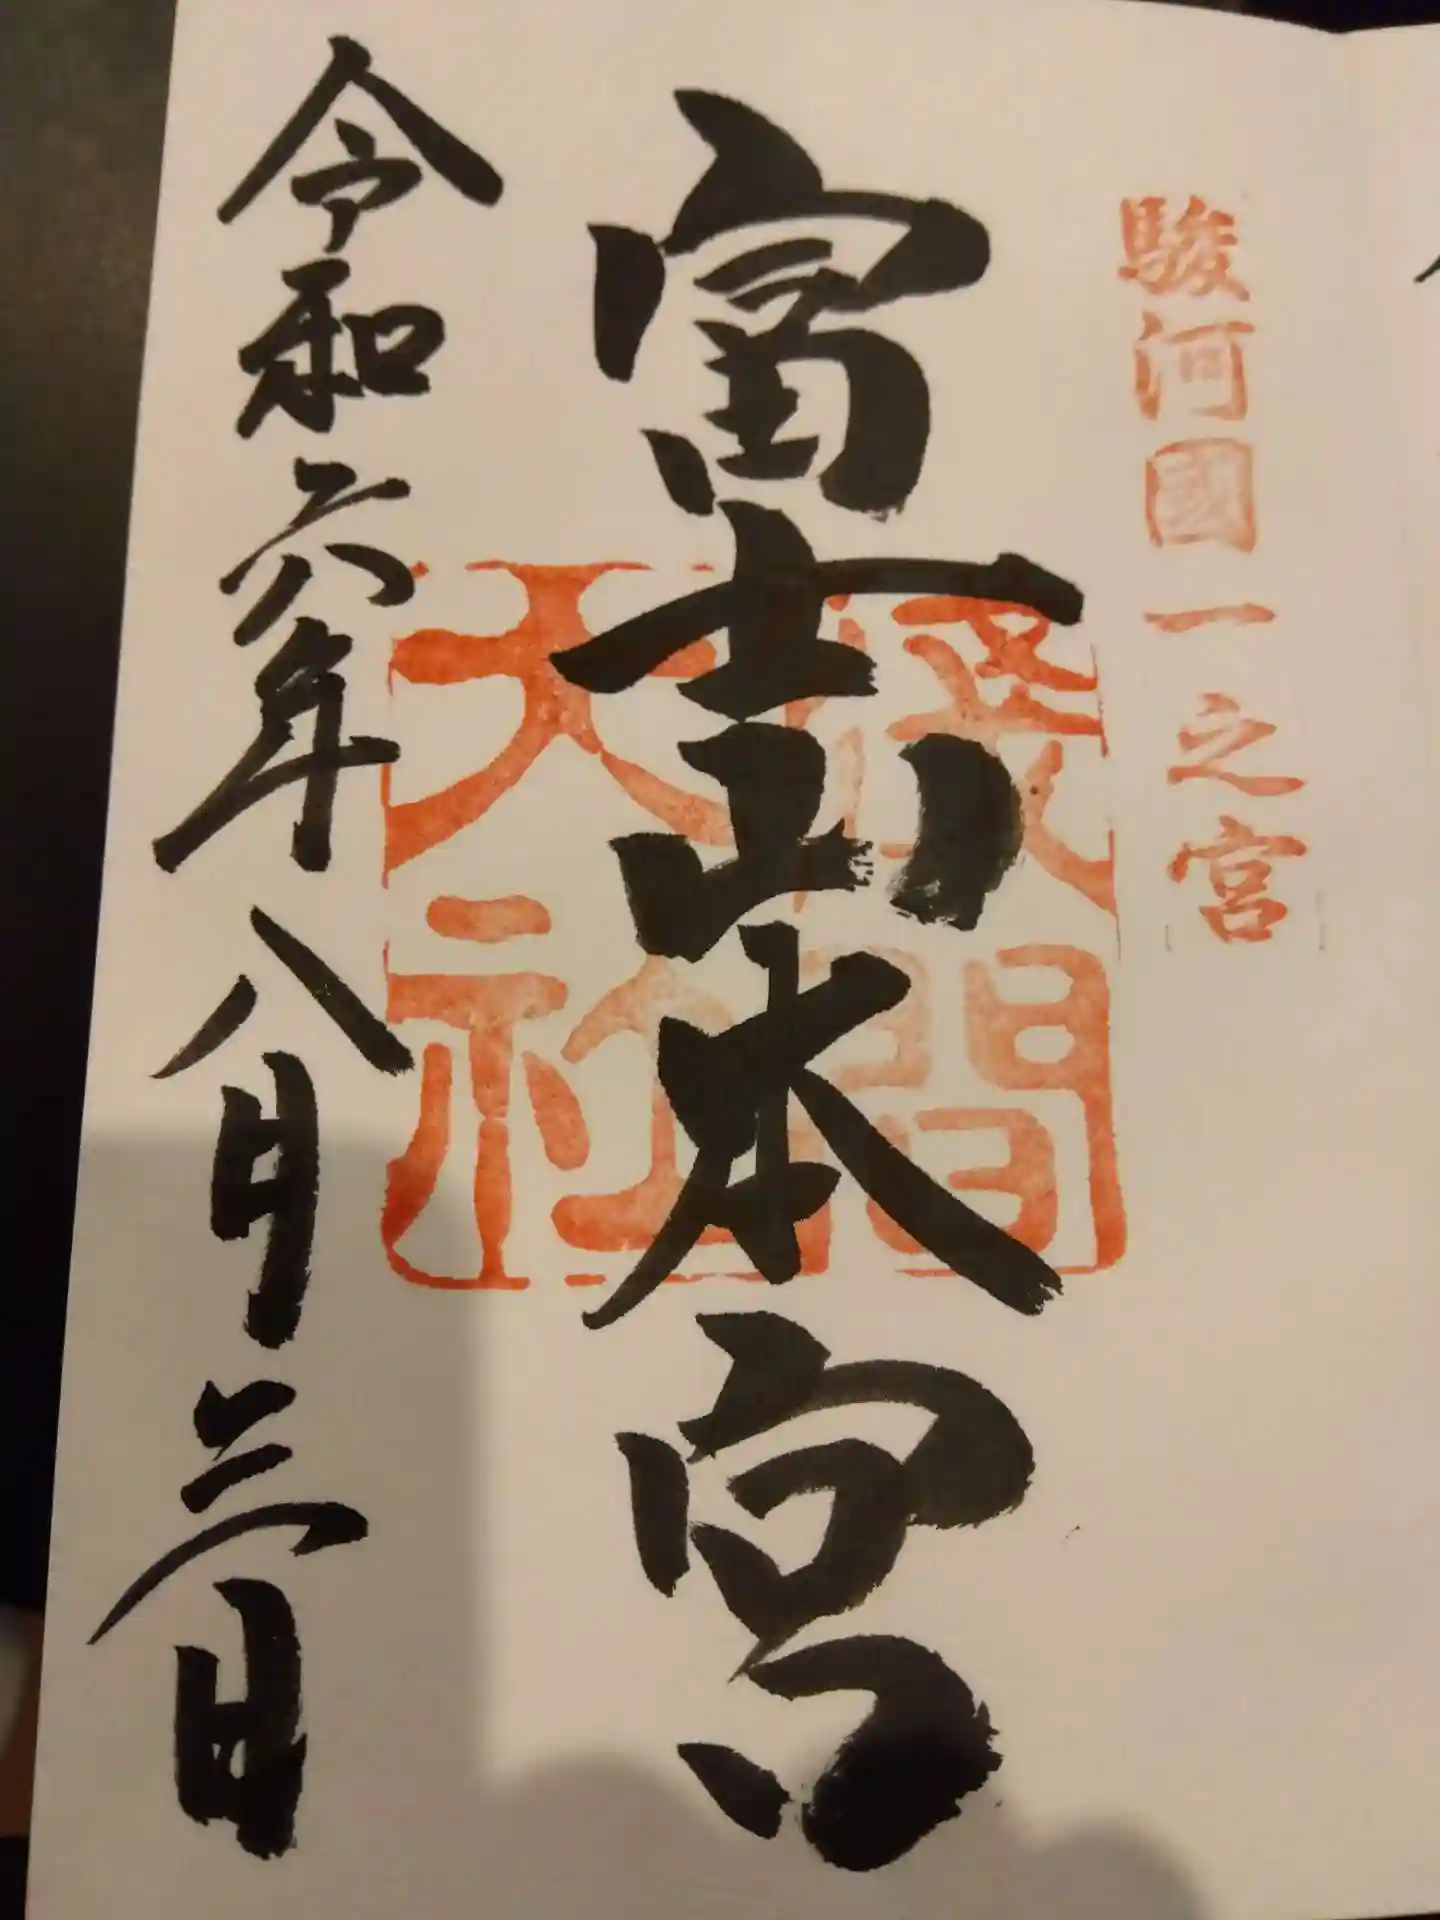 駿河國一之宮
富士山本宮
淺間大社
令和六年八月三日